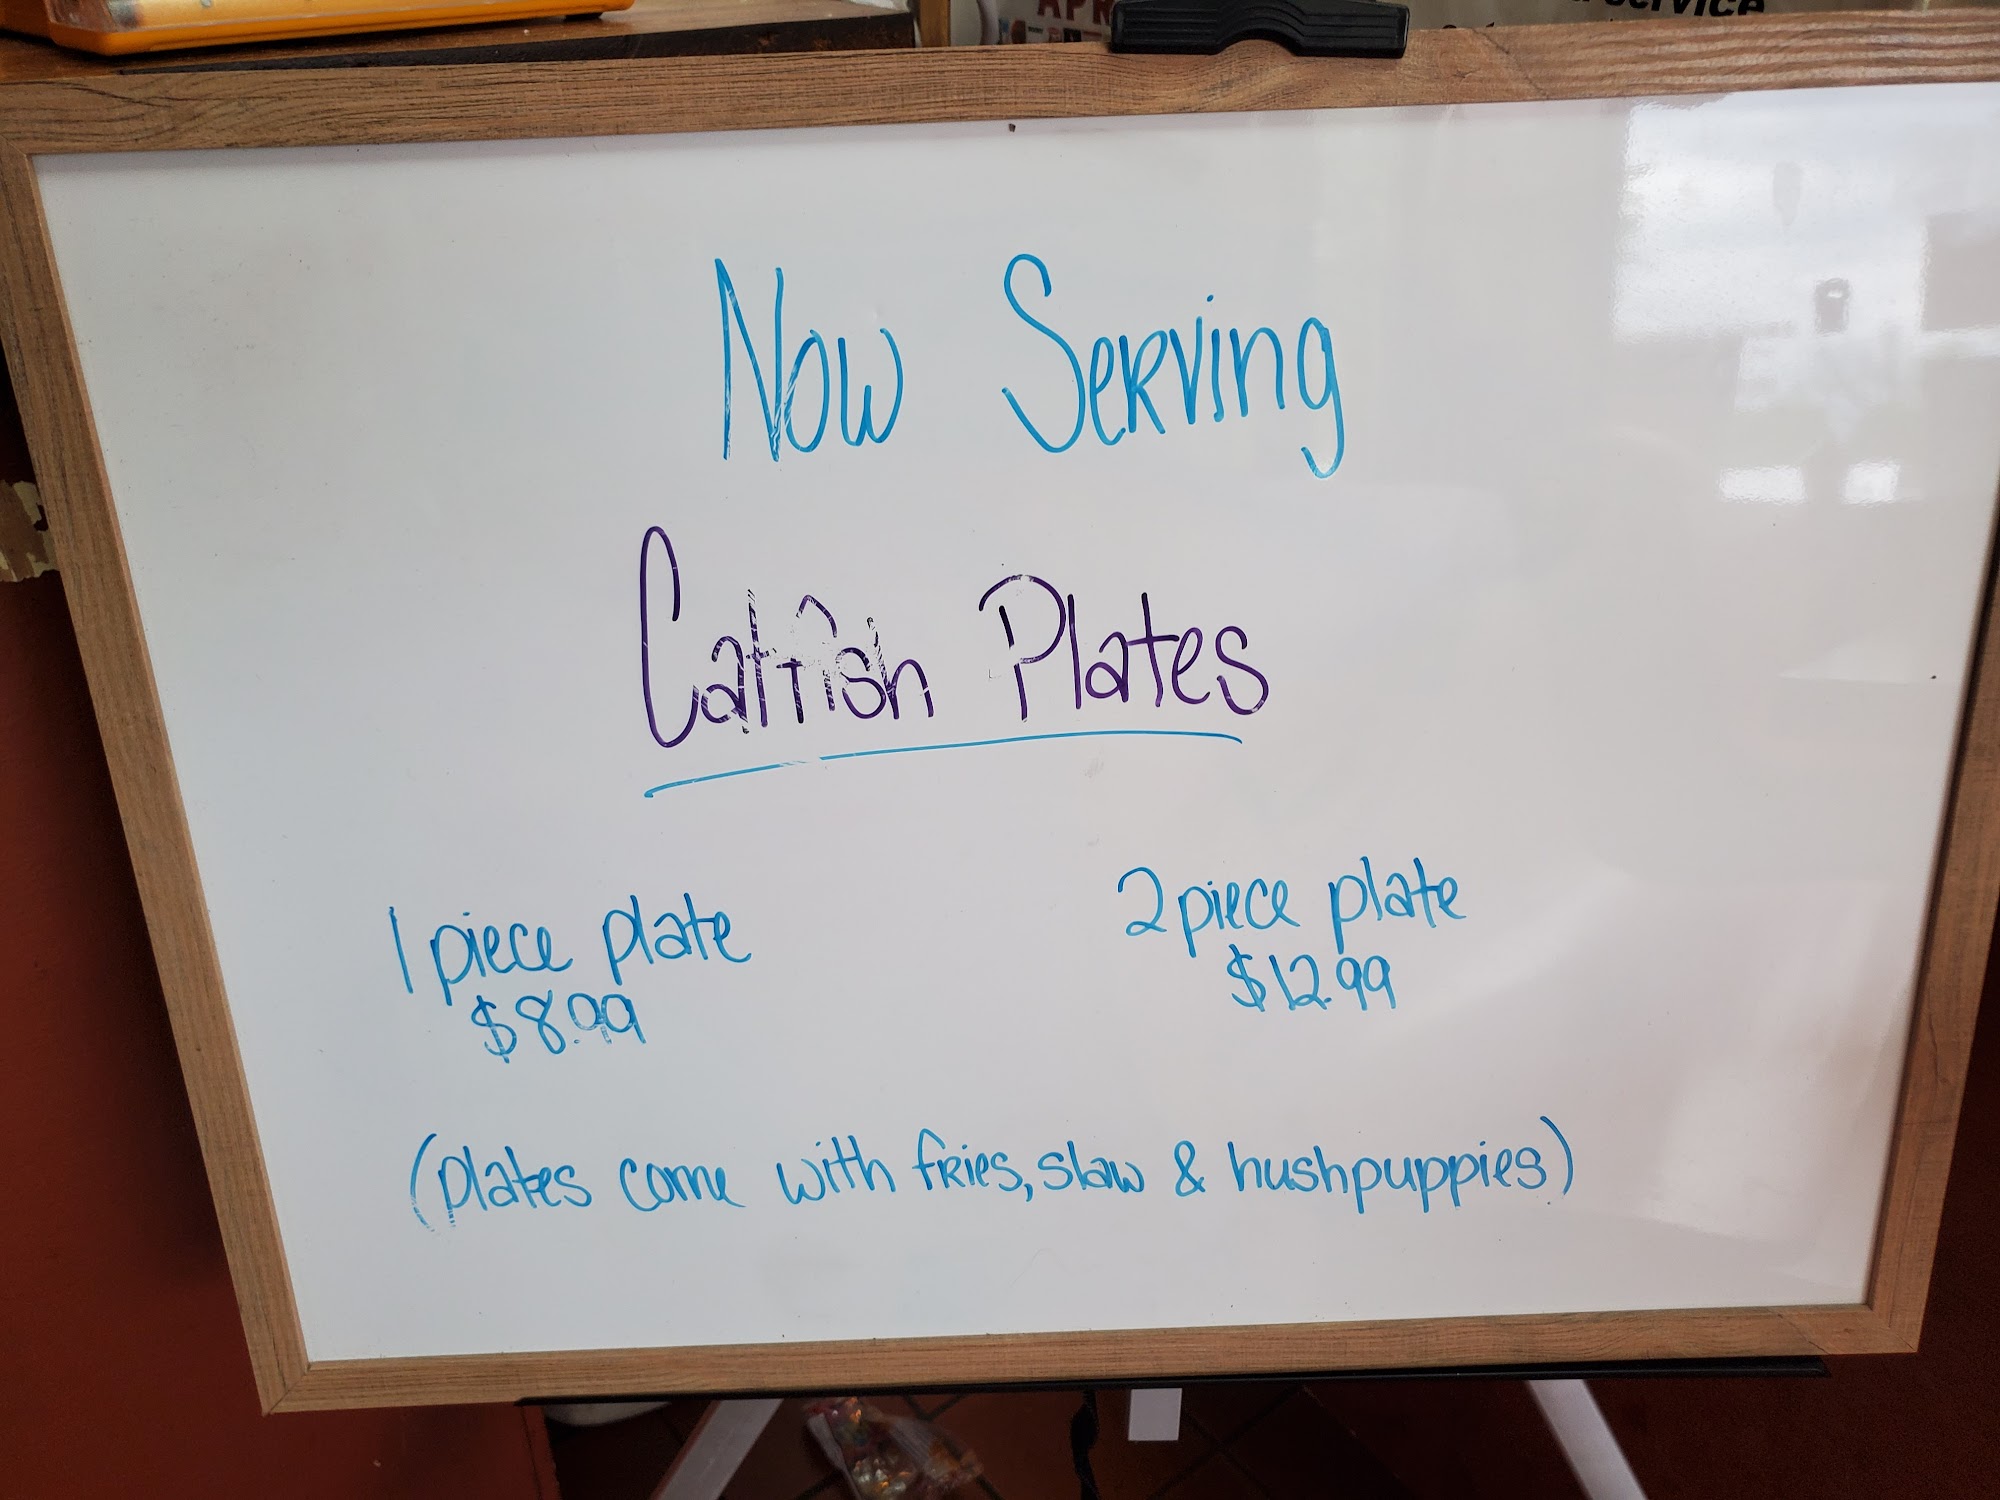 service
Now Serving
Catfish Plates
1 piece plate
$8.99
2 piece plate
$12.99
(plates come with fries, slaw & hushpuppies)